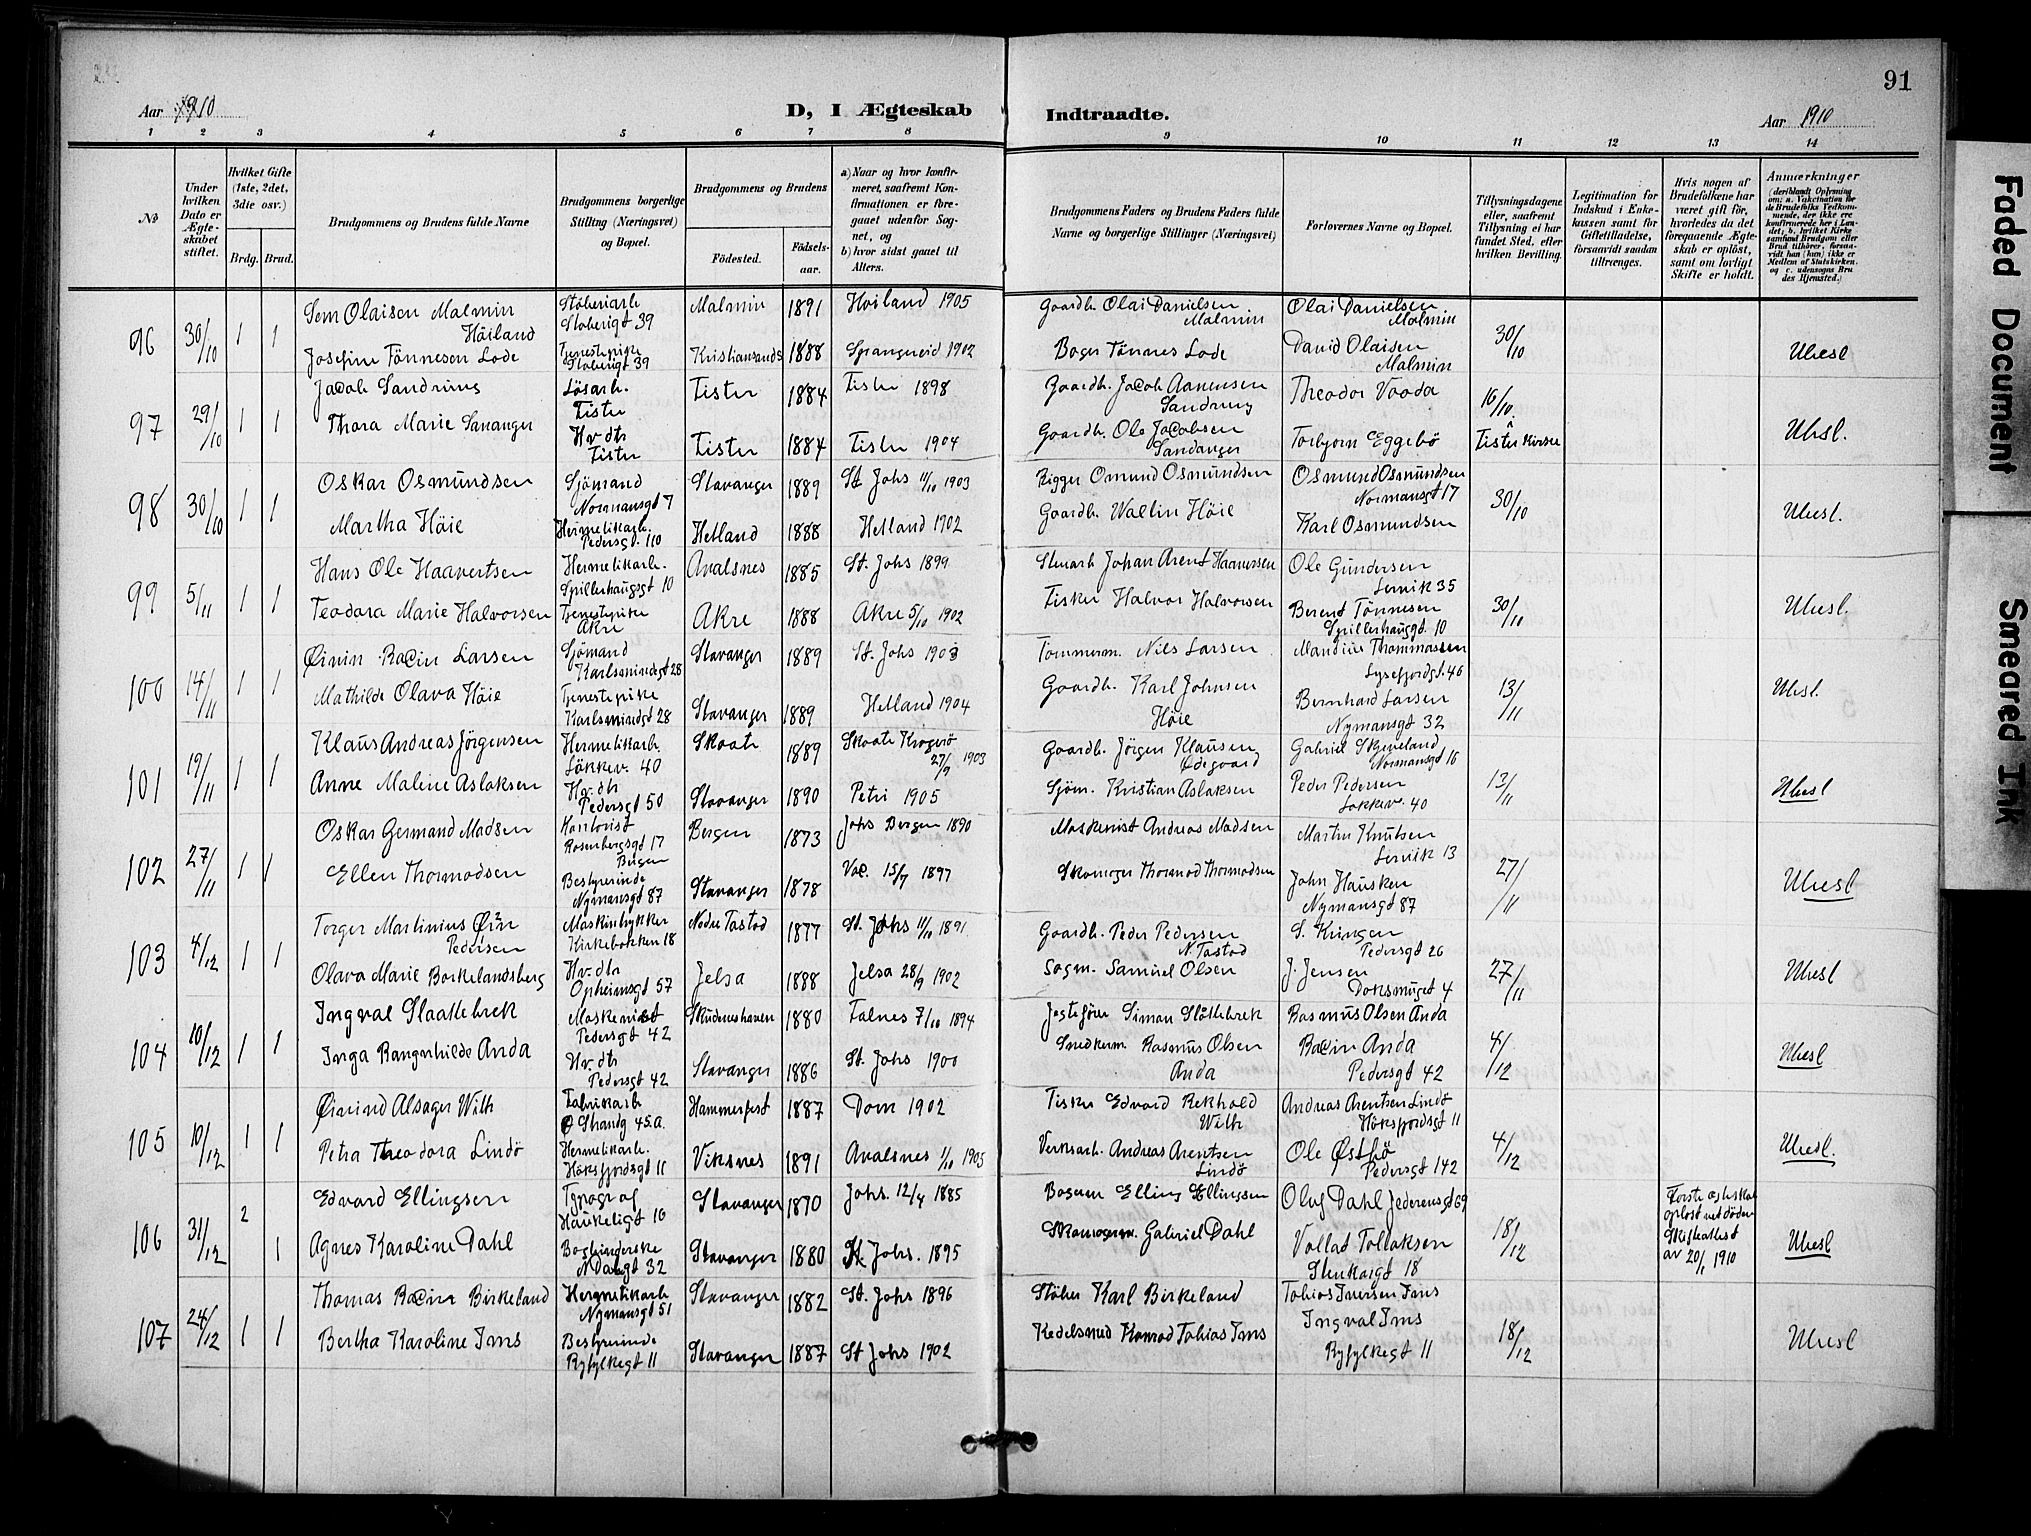 91
Aar 1910
D, I Ægteskab
Indtraadte.
Aar 1910
1 2 3 4 5 6 7 8 9 10 11 12 13 14
№
Under hvilken Dato er Ægteskabet stiftet.
Hvilket Gifte (1ste, 2det, 3die osv.)
Brdg. Brud.
Brudgommens og Brudens fulde Navne
Brudgommens borgerlige Stilling (Næringsvei) og Bopæl.
Brudgommens og Brudens
Fødested.
Fødselsaar.
a) Naar og hvor konfirmeret, saafremt Konfirmationen er foregaaet udenfor Sognet, og
b) hvor sidst gaaet til Alters.
Brudgommens Faders og Brudens Faders fulde Navne og borgerlige Stillinger (Næringsvei)
Forlovernes Navne og Bopæl.
Tillysningsdagene eller, saafremt Tillysning ei har fundet Sted, efter hvilken Bevilling.
Legitimation for Indskud i Enkekassen samt for Giftetilladelse, forsaavidt saadan tiltrænges.
Hvis nogen af Brudefolkene har været gift før, hvorledes da det foregaaende Ægteskab er opløst, samt om lovligt Skifte er holdt.
Anmærkninger
96 30/10 1 1
Sem Olaisen Malmin Höiland
Støberiarb Støberigt 39
Malmin 1891 Hoiland 1905
Gaardb. Olai Danielsen Malmin
Olai Danielsen Malmin
30/10
Josefine Tönnesen Lode
Tjenestepike Støberigt 39
Kristiansands 1888 Spangereid 1902
Tönnes Lode
David Olaisen Malmin
Uhesl
97 29/10 1 1
Jacob
Løsarb. Fister
Fister 1884 Fister 1898
Gaardb. Jacob Aanensen
Theodor Vaada
16/10
Thora Marie
Hv. dtr Fister
Fister 1884 Fister 1904
Gaardb. Ole Jacobsen Sandanger
Torbjørn Eggebö
Fister Kirke
Uhesl.
98 30/10 1 1
Oskar Osmundsen
Sjömand Normansgt 7
Stavanger 1889 St. Johs 11/10 1903
Rigger Omund Osmundsen
Osmund Osmundsen Normansgt 17
30/10
Martha Höie
Hermetikarb. Pedersgd. 110
Hetland 1888 Hetland 1902
Gaardb. Wallin Höie
Karl Osmundsen
Uhesl.
99 5/11 1 1
Hans Ole Haavertsen
Hermetikarb. Spillerhaugsgt 10
Avalsnes 1885 St. Johs 1899
Johan Arent
Ole Gundersen Lervik 35
30/10
Teodora Marie Halvorsen
Tjenestepike Akre
Akre 1888 Akre 5/10 1902
Fisker Halvor Halvorsen
Berent Tönnesen Spillerhausgt. 10
Uhesl.
100 14/11 1 1
Racin Larsen
Sjömand Karlsmindegt 28
Stavanger 1889 St. Johs 1903
Tömmerm. Nils Larsen
Thommassen Lysefjordgt. 46
13/11
Mathilde Olava Höie
Tjenestepike Karlsmindgt 28
Stavanger 1889 Hetland 1904
Gaardb. Karl Johnsen Höie
Bernhard Larsen Nymansgt 32
Uhesl.
101 19/11 1 1
Klaus Andreas Jörgensen
Hermetikarb. Løkkev. 40
Skaate 1889 Skaate Kragerø 27/9 1903
Gaardb. Jörgen Klausen Ødegaard
Gabriel Skjeveland Normansgt 16
13/11
Anne Maline Aslaksen
Hv. dtr Pedersgt 50
Stavanger 1890 Petri 1905
Sjöm. Kristian Aslaksen
Peder Pedersen Løkkev. 40
Uhesl
102 27/11 1 1
Oskar Germand Madsen
Kontorist Rosenbergsgt 17 Bergen
Bergen 1873 Johs Bergen 1890
Maskenist Andreas Madsen
Martin Knutsen Lervik 13
27/11
Ellen Thormodsen
Bestyrerinde Nymansgt 87
Stavanger 1878 15/7 1897
Skomager Thormod Thormodsen
John Hausken Nymansgt 87
Uhesl
103 4/12 1 1
Torger Martinius Pedersen
Kirkebakken 18
Nedre Tastad 1877 St. Johs 11/10 1891
Gaardb. Peder Pedersen N. Tastad
S. Pedersgt 26
27/11
Olava Marie Borkelandsberg
Hv. dtr Opheimsgt 57
Jelsa 1888 Jelsa 28/9 1902
Sagm. Samuel Olsen
J. Jensen 4
Uhesl
104 10/12 1 1
Ingval Slaattebrek
Maskenist Pedersgt 42
Skudneshavn 1880 Falnes 7/10 1894
Simon Slåttebrek
Rasmus Olsen Anda
4/12
Inga Rangnhilde Anda
Hv. dtr Pedersgt 42
Stavanger 1886 St. Johs 1900
Snedkerm. Rasmus Olsen Anda
Racin Anda Pedersgt 42
Uhesl
105 10/12 1 1
Øivind Alsager With
Fabrikarb Ø Strandg 45a.
Hammerfest 1887 Dom 1902
Fisker Edvard Rekhold With
Andreas Arentsen Lindö Höksfjordsgt 11
4/12
Petra Theodora Lindö
Hermetikarb. Höksfjordsgt 11
Viksnes 1891 Avalsnes 1/10 1905
Verksarb. Andreas Arentsen Lindö
Ole Østbö Pedersgt 142
Uhesl.
106 31/12 2 1
Edvard Ellingsen
Typograf Haukeligt 16
Stavanger 1870 Johs. 12/4 1885
Elling Ellingsen
Oluf Dahl Jederensgt 69
18/12
Første egteskab opløst ved døden Skifteattest av 20/1 1910
Agnes Karoline Dahl
Bogbinderske 32
Stavanger 1880 St Johs. 1895
Gabriel Dahl
Vollat Tollaksen Stenkargt 18
Uhesl
107 24/12 1 1
Thomas Racin Birkeland
Hermetikarb Nymansgt 51
Stavanger 1882 St. Johs 1896
Støber Karl Birkeland
Tobias Iversen Ims
18/12
Bertha Karoline Ims
Bestyrerinde Ryfylkegt 11
Stavanger 1887 St Johs 1902
Kedelsmed Konrad Tobias Ims
Ingval Ims Ryfylkegt 11
Uhesl
Faded Document
Smeared Ink